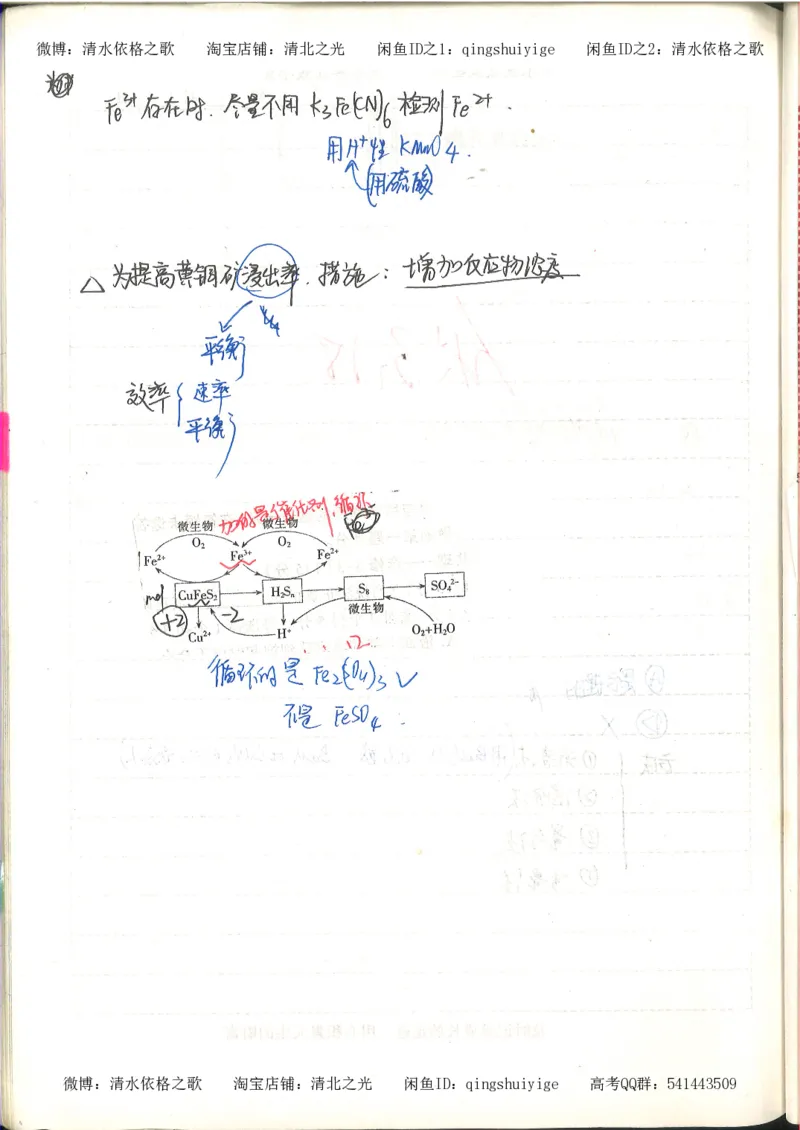 微博：清水依格之歌 淘宝店铺：清北之光 闲鱼ID之1：qingshuiyige 闲鱼ID之2：清水依格之歌
Fe³⁺存在时．尽量不用 K₃Fe(CN)₆ 检测 Fe²⁺．
用H⁺性 KMnO₄．
用硫酸
△ 为提高黄铜矿浸出率．措施：增加反应物浓度
平衡
效率 { 速率
平衡
加的是催化剂，循环
微生物 微生物
O₂ O₂
Fe²⁺ Fe³⁺ Fe²⁺
CuFeS₂ H₂Sₙ S₈ SO₄²⁻
+2 -2 微生物
Cu²⁺ H⁺ O₂+H₂O
循环的是 Fe₂(SO₄)₃ ✓
不是 FeSO₄．
微博：清水依格之歌 淘宝店铺：清北之光 闲鱼ID：qingshuiyige 高考QQ群：541443509